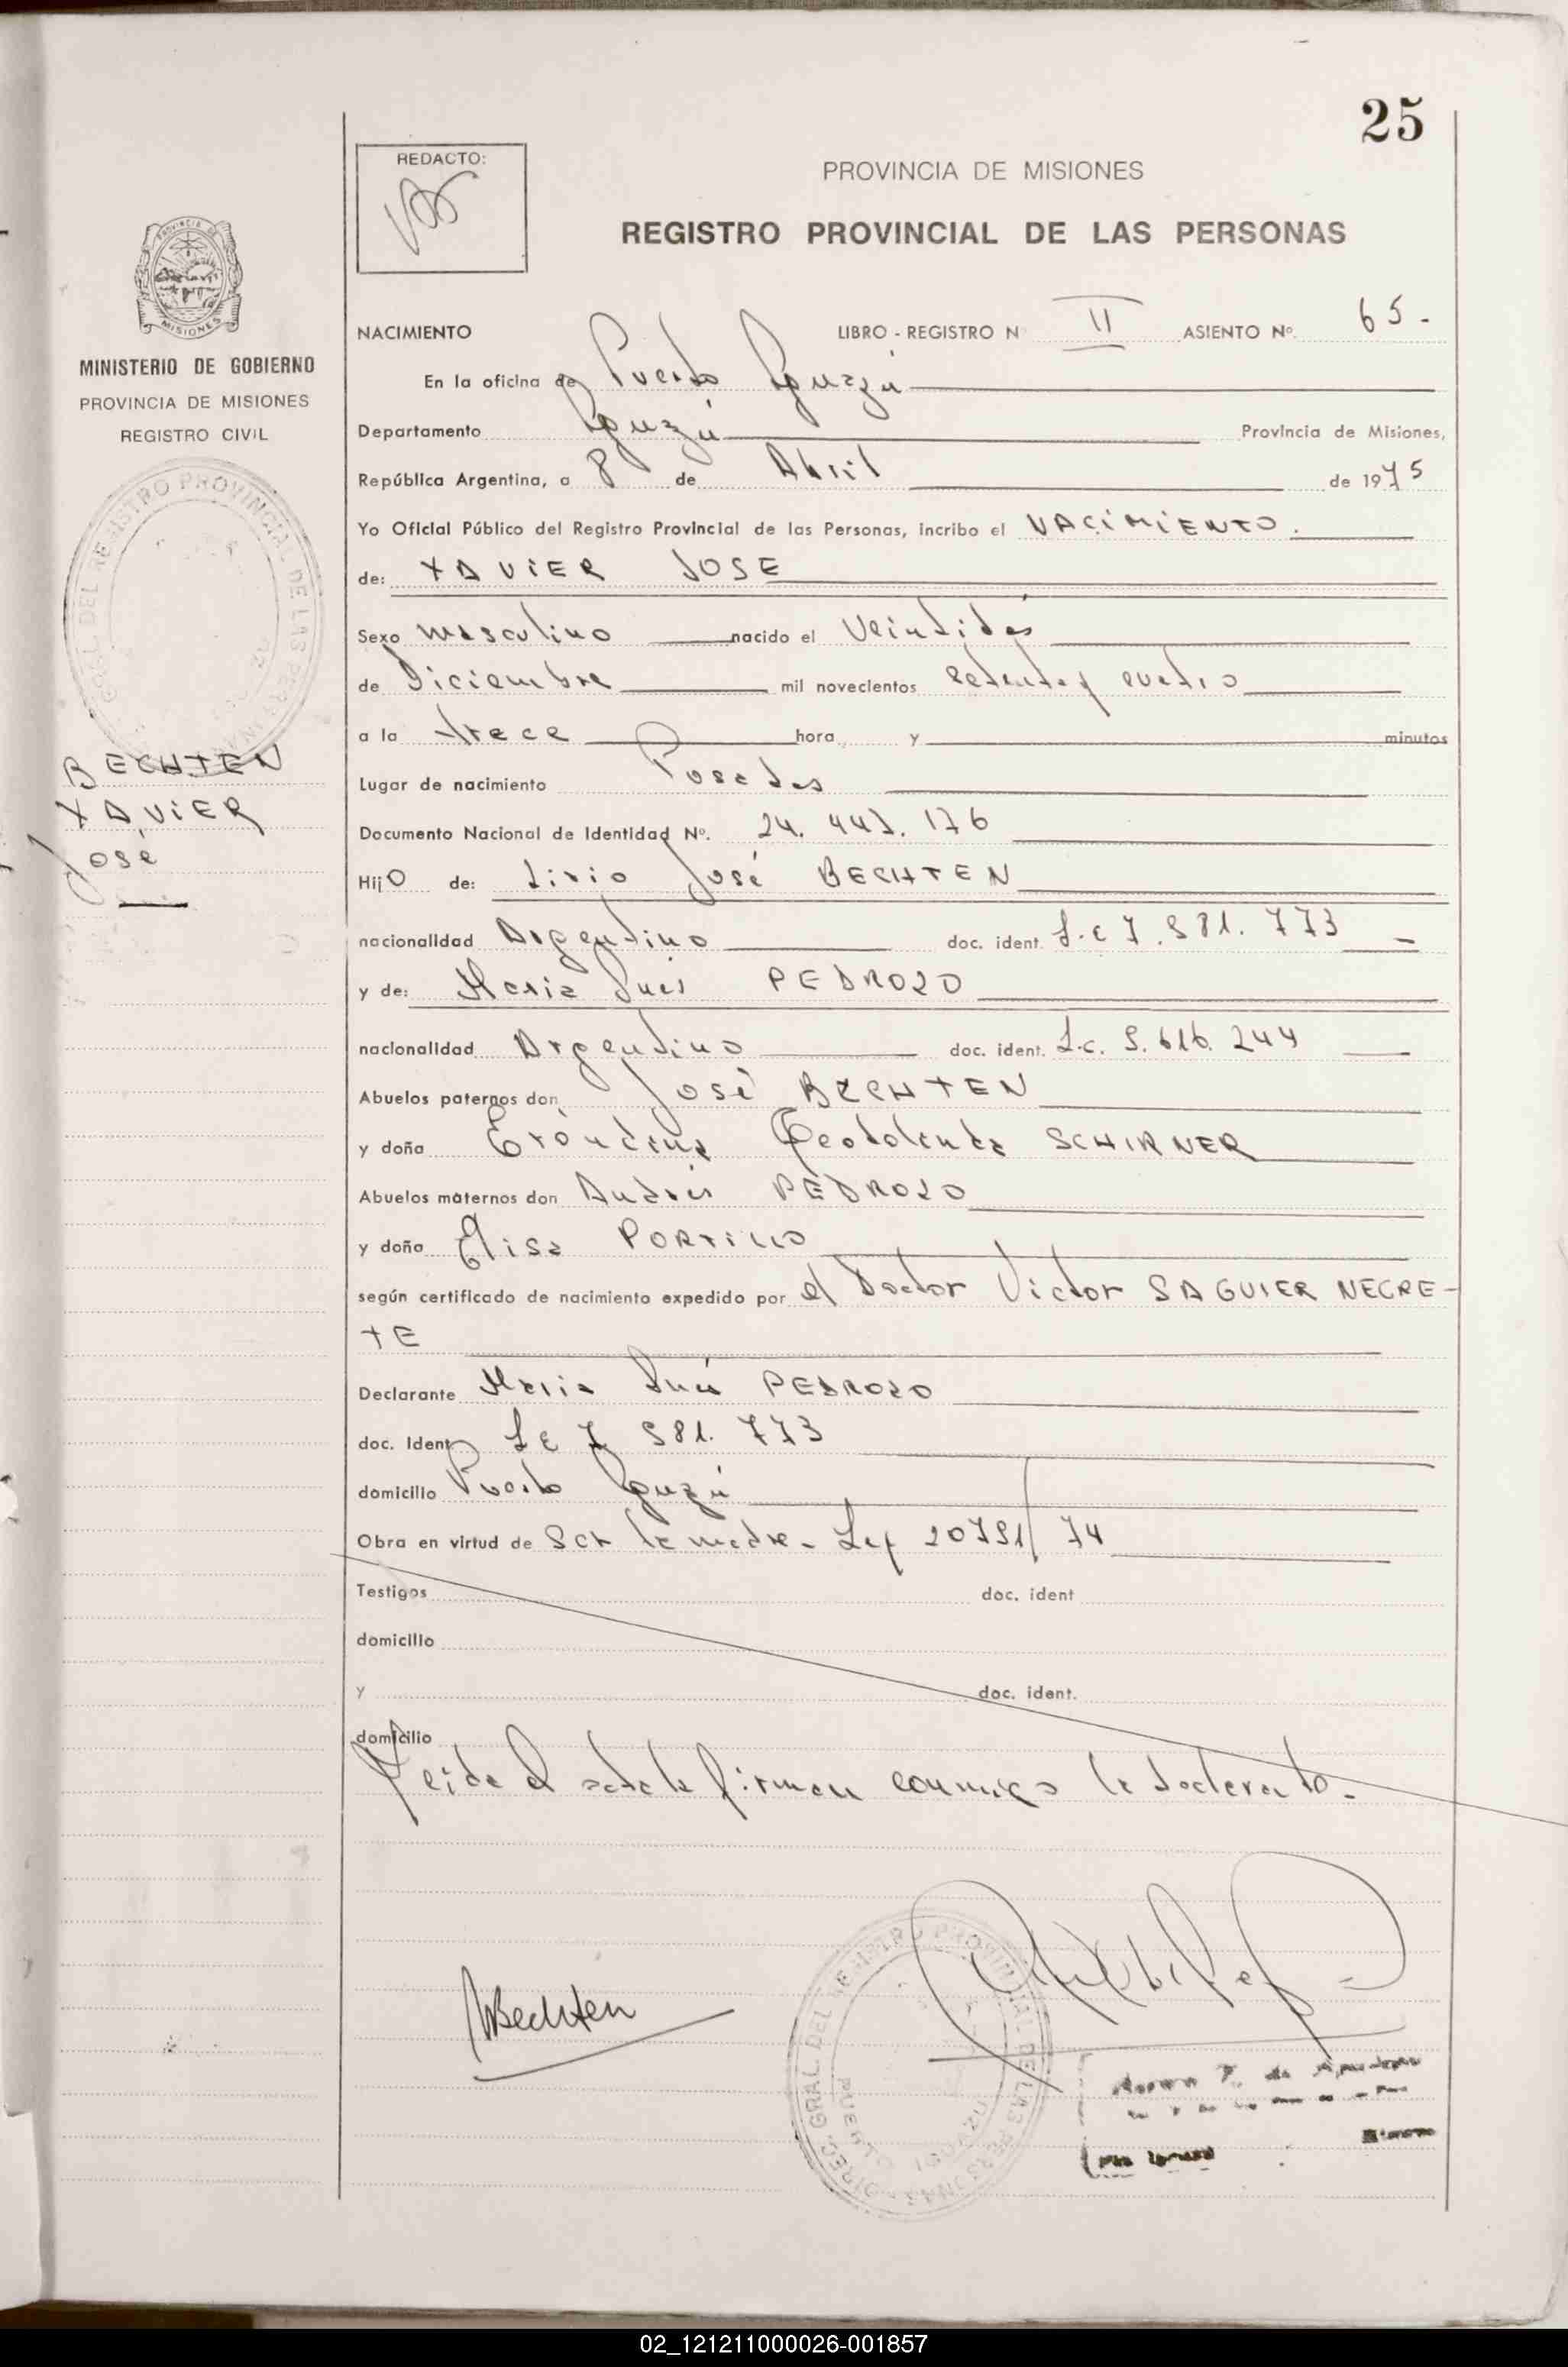 25
REDACTO:
PROVINCIA DE MISIONES
REGISTRO PROVINCIAL DE LAS PERSONAS
MISIONES
MINISTERIO DE GOBIERNO
PROVINCIA DE MISIONES
REGISTRO CIVIL
BECHTEN
XAVIER
José
NACIMIENTO LIBRO - REGISTRO Nº II ASIENTO Nº. 65.-
En la oficina de Puerto Iguazú
Departamento Iguazú Provincia de Misiones,
República Argentina, a 8 de Abril de 1975
Yo Oficial Público del Registro Provincial de las Personas, incribo el NACIMIENTO.
de: XAVIER JOSE
Sexo masculino nacido el Veintidós
de Diciembre mil novecientos setenta y cuatro
a la trece hora y minutos
Lugar de nacimiento Posadas
Documento Nacional de Identidad Nº. 24. 447. 176
Hijo de: Livio José BECHTEN
nacionalidad Argentino doc. ident.
y de: Maria Inés PEDROZO
nacionalidad Argentino doc. ident. L.C. 5.616.244
Abuelos paternos don José BECHTEN
y doña SCHIRNER
Abuelos maternos don Andrés PEDROZO
y doña Elisa PORTILLO
según certificado de nacimiento expedido por el Doctor Victor SAGUIER NEGRE-
TE
Declarante Maria Inés PEDROZO
doc. Ident.
domicilio Puerto Iguazú
Obra en virtud de Ser la madre - Ley
Testigos doc. ident
domicilio
y doc. ident.
domicilio
Leida el acta la firman conmigo la
Bechten
DIREC. GRAL. DEL REGISTRO PROVINCIAL DE LAS PERSONAS
02_121211000026-001857